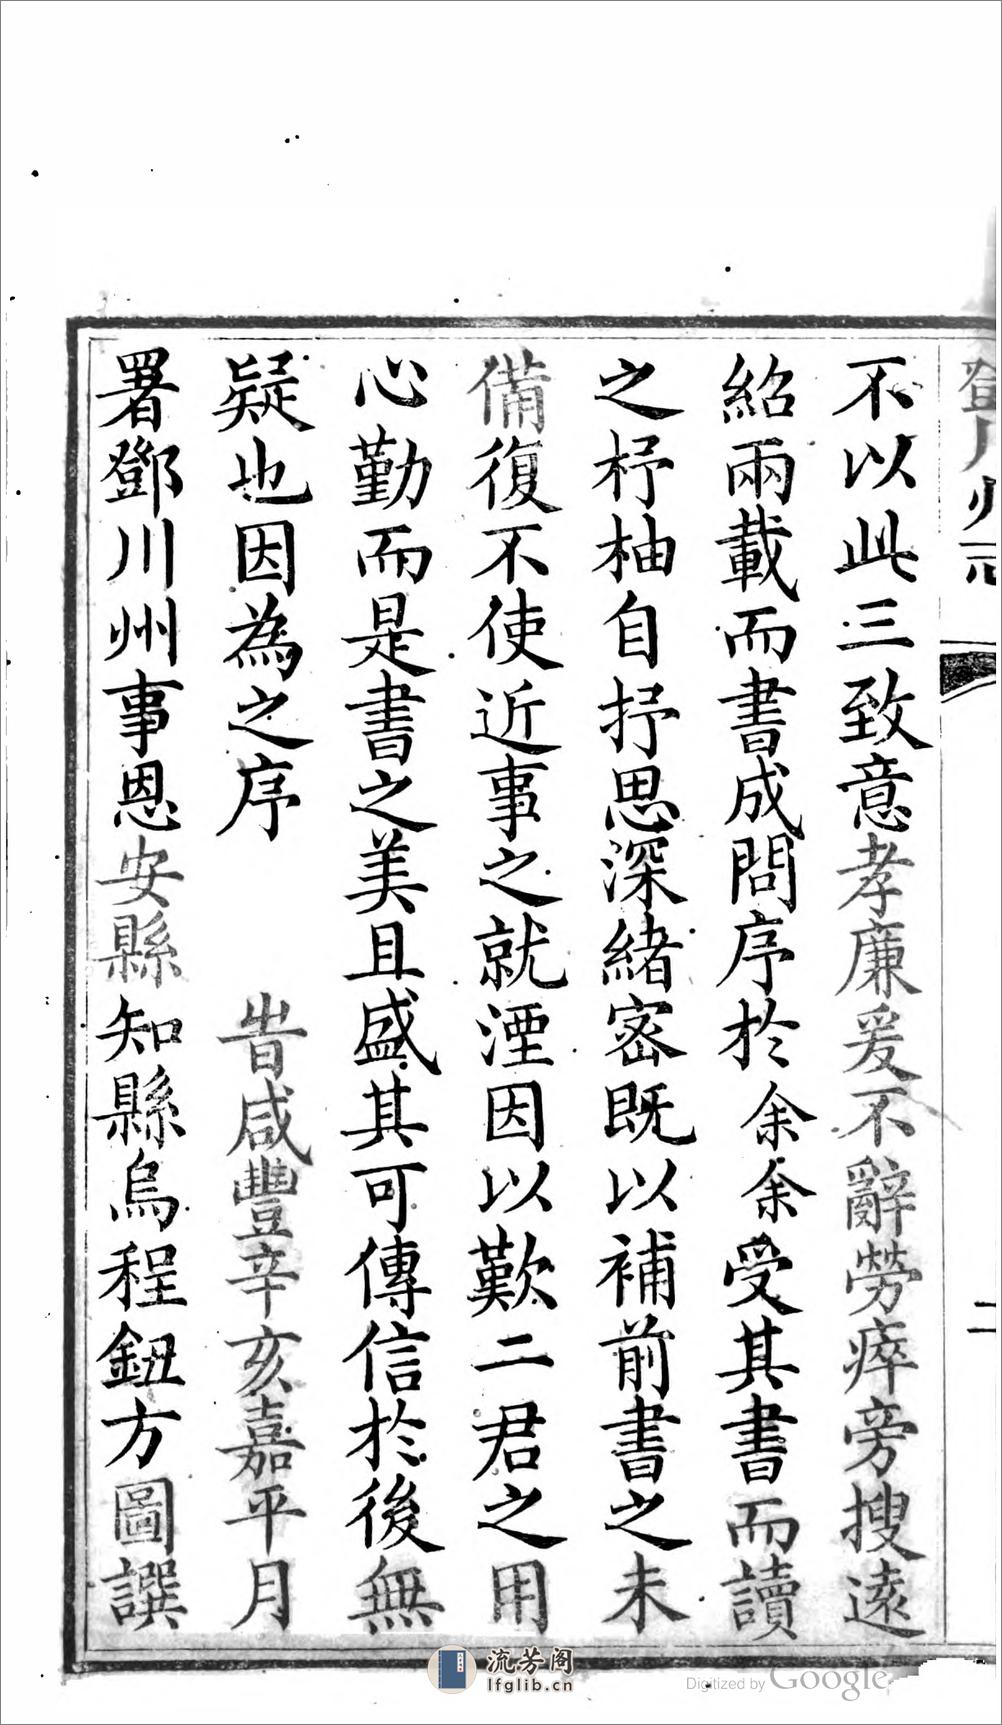 鄧川州志
二
不以此三致意孝廉爰不辭勞瘁旁搜遠
紹兩載而書成問序於余余受其書而讀
之杼柚自抒思深緒密既以補前書之未
備復不使近事之就湮因以歎二君之用
心勤而是書之美且盛其可傳信於後無
疑也因為之序 旹咸豐辛亥嘉平月
署鄧川州事恩安縣知縣烏程鈕方圖譔
流芳阁
lfglib.cn
Digitized by Google